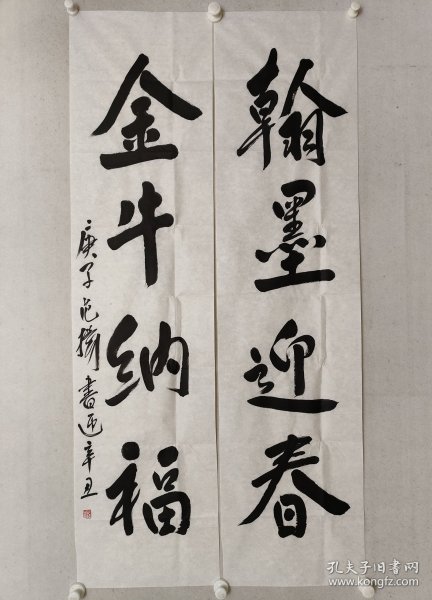 翰墨迎春
金牛纳福
庚子范扬书迎辛丑
孔夫子旧书网
www.kongfz.com